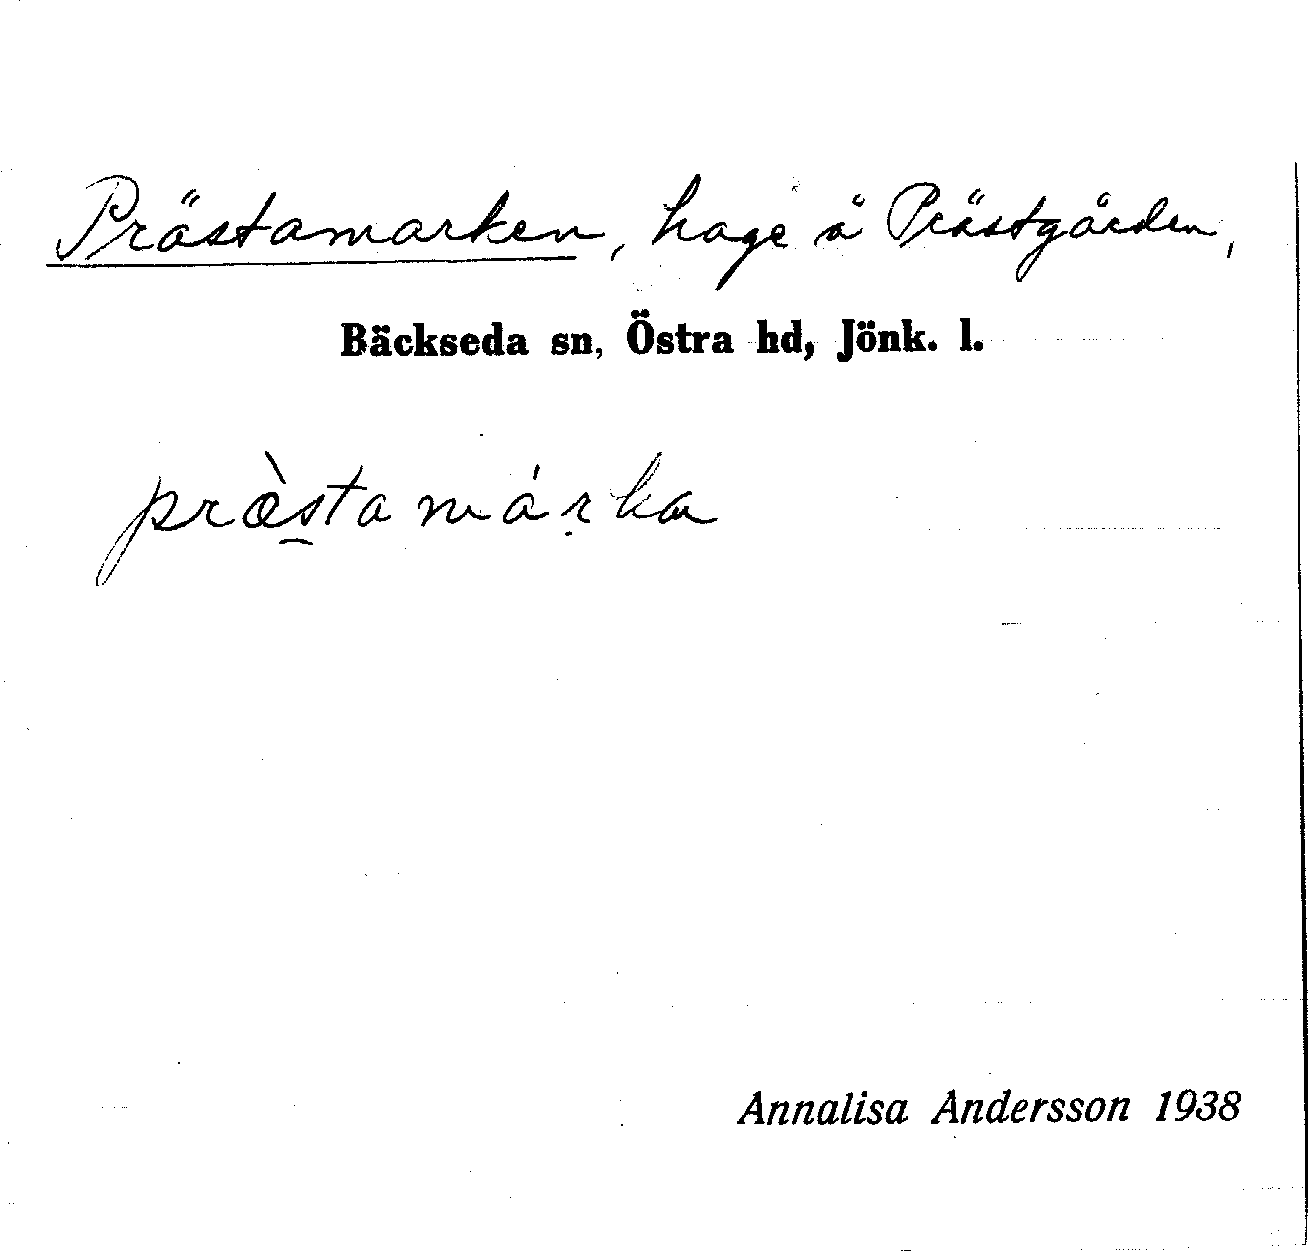 Prästamarken, hage å Prästgården,
Bäckseda sn, Östra hd, Jönk. l.
præ̀stamárka
Annalisa Andersson 1938